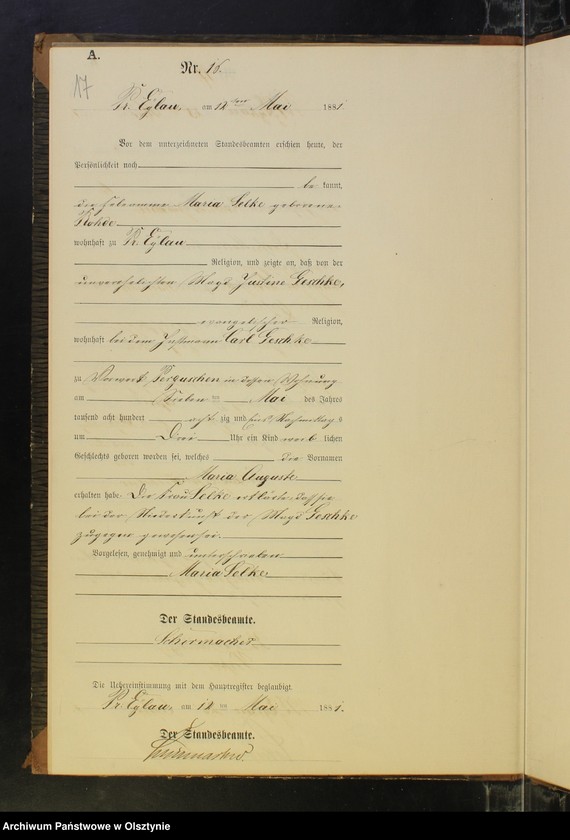 A.
17
Nr. 16.
Pr. Eylau, am 12ten Mai 1881.
Vor dem unterzeichneten Standesbeamten erschien heute, der
Persönlichkeit nach
be kannt,
die Hebamme Maria Selke geborene
Rohde
wohnhaft zu Pr. Eylau
Religion, und zeigte an, daß von der
unverehelichten Magd Justine Geschke,
evangelischer Religion,
wohnhaft bei dem Instmann Carl Geschke
zu Vorwerk Perguschen in dessen Wohnung
am Sieben ten Mai des Jahres
tausend acht hundert acht zig und Eins Nachmittag s
um Drei Uhr ein Kind weib lichen
Geschlechts geboren worden sei, welches die Vornamen
Maria Auguste
erhalten habe. Die Frau Selke erklärte, daß sie
bei der Niederkunft der Magd Geschke
zugegen gewesen sei.
Vorgelesen, genehmigt und unterschrieben
Maria Selke
Der Standesbeamte.
Schirmacher
Die Uebereinstimmung mit dem Hauptregister beglaubigt
Pr. Eylau, am 12 ten Mai 1881.
Der Standesbeamte.
Schirmacher
Archiwum Państwowe w Olsztynie